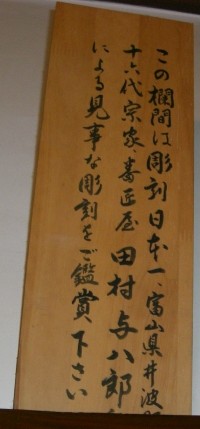 この欄間は彫刻日本一、富山県井波町
十六代宗家、番匠屋田村与八郎
による見事な彫刻をご鑑賞下さい